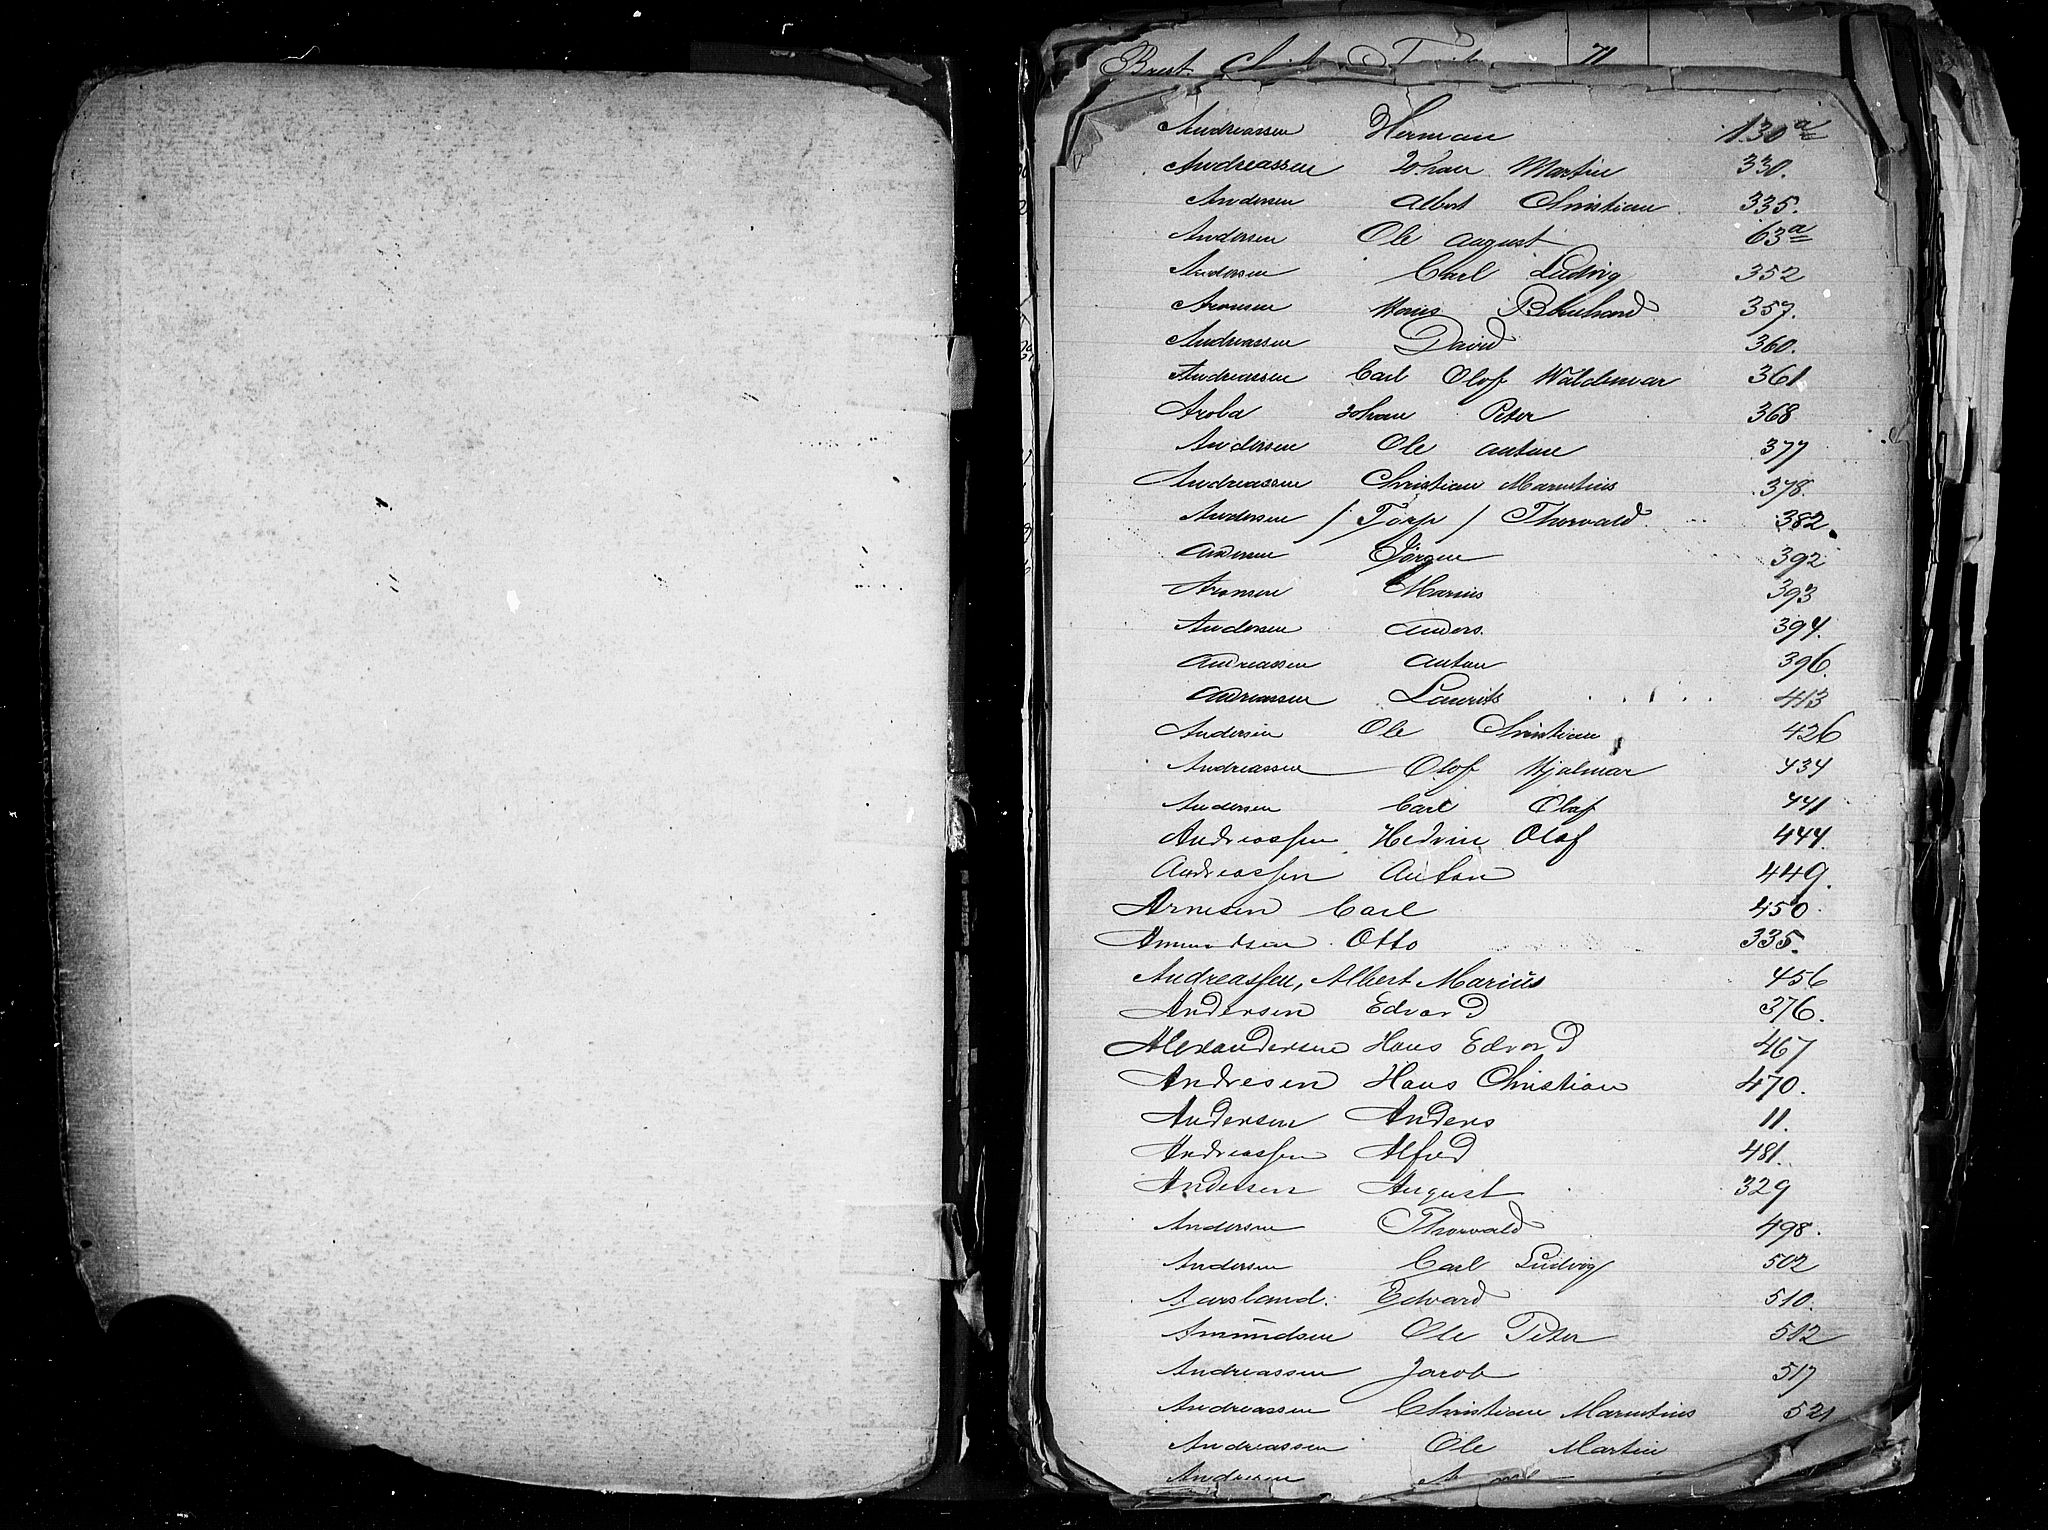 71
Andreassen Herman 130a
Andreassen Johan Martin 330.
Andersen Albert Christian 335.
Andersen Ole August 63a
Andersen Carl Ludvig 352
Aronsen 357.
Andreassen David 360.
Andreassen Carl Olof Waldemar 361
Johan Peter 368
Andersen Ole Anton 377
Andreassen Christian Marentius 378.
Andersen / Torp / Thorvald 382.
Andersen Jörgen 392
Aronsen Marius 393
Andersen Anders. 394.
Andreassen Anton 396.
Andreassen Laurits 413
Andersen Ole Christian 426
Andreassen Olof Hjalmar 434
Andersen Carl Olaf 441
Andreassen Hedvin Olaf 444.
Andreassen Anton 449.
Arnesen Carl 450.
Amundsen Otto 335.
Andreassen, Albert Marius 456
Andersen Edvard 376.
Alexandersen Hans Edvard 467
Andresen Hans Christian 470.
Andersen Anders 11.
Andreassen Alfred 481.
Andersen August 329
Andersen Thorvald 498.
Andersen Carl Ludvig 502
Aarsland. Edvard 510.
Amundsen Ole Peter 512
Andreassen Jacob 517
Andreassen Christian Marentius 521
Andreassen Ole Martin
Andresen